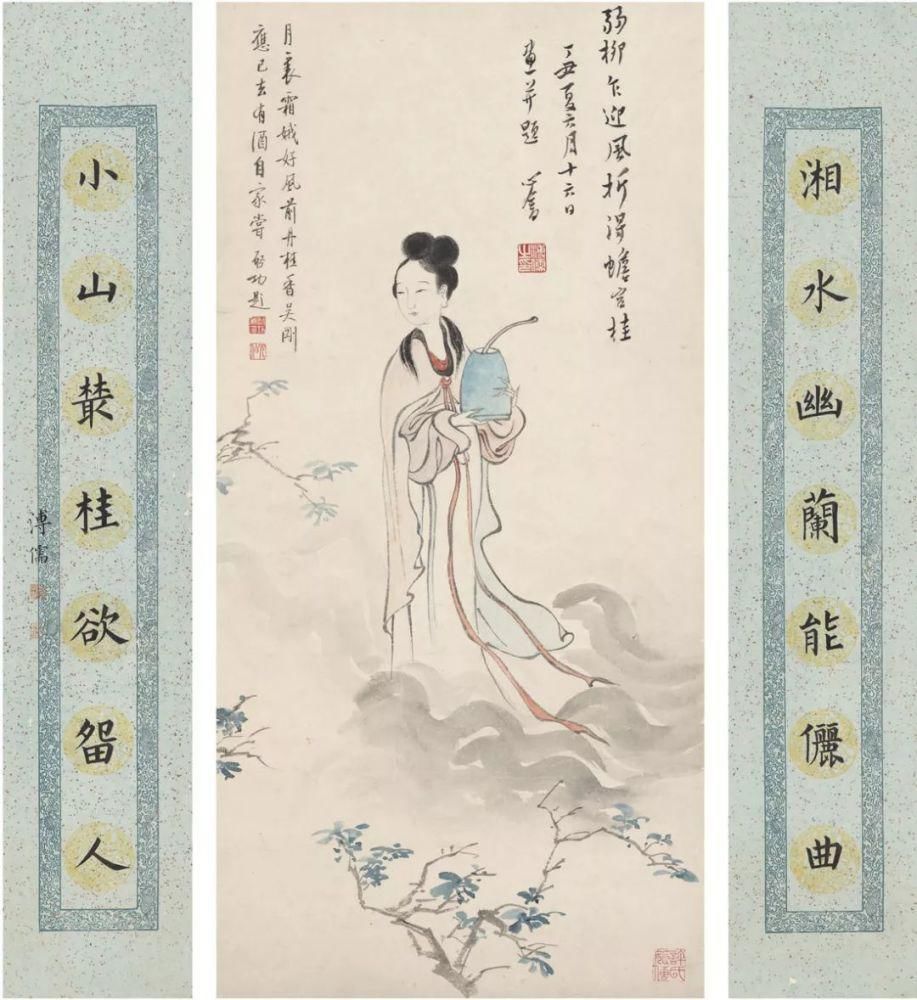 湘水幽蘭能儷曲
弱柳乍迎風折得蟾宮桂
丁丑夏六月十六日
畫并題 心畬
月裏霜娥好風前丹桂香吳剛
應已去有酒自家嘗 啟功題
小山叢桂欲留人
溥儒